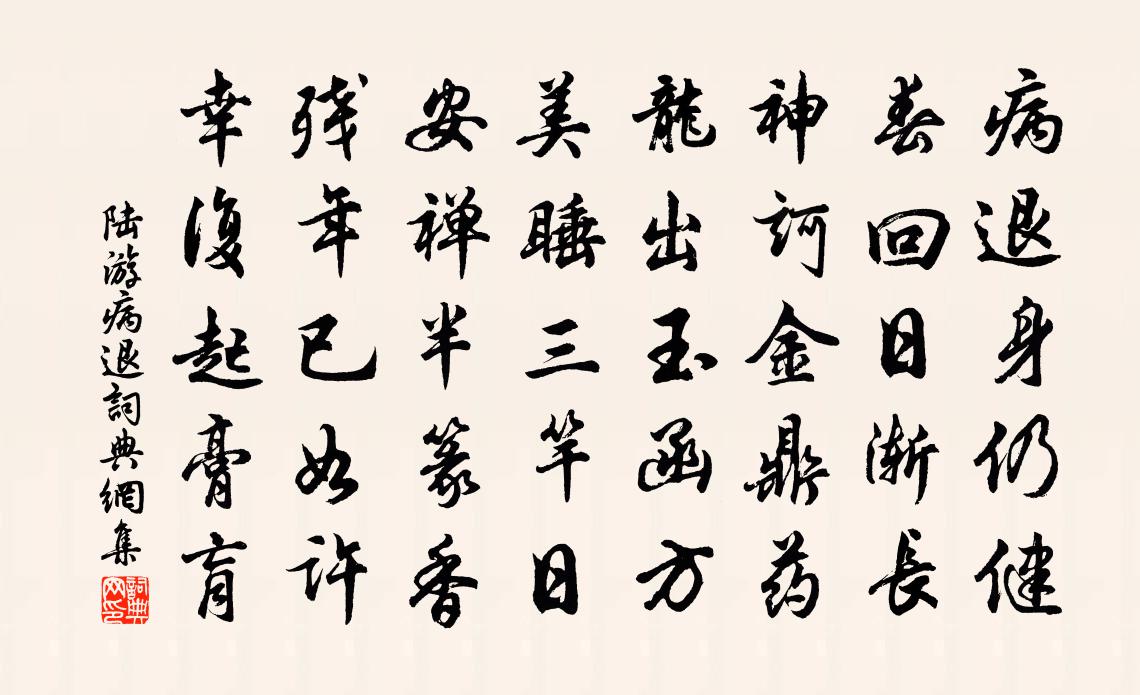 病退身仍健
春回日漸長
神訶金鼎药
龍出玉函方
美睡三竿日
安禅半篆香
残年已如许
幸復起膏肓
陆游病退詞典網集
詞典网印